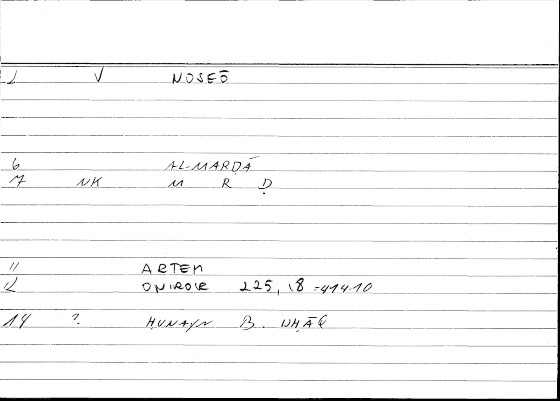 1 V NOSEŌ
6 AL-MARḌĀ
7 NK M R Ḍ
11 ARTEM
12 ONIROCR 225, 18 = 414.10
14 ? ḤUNAYN B.